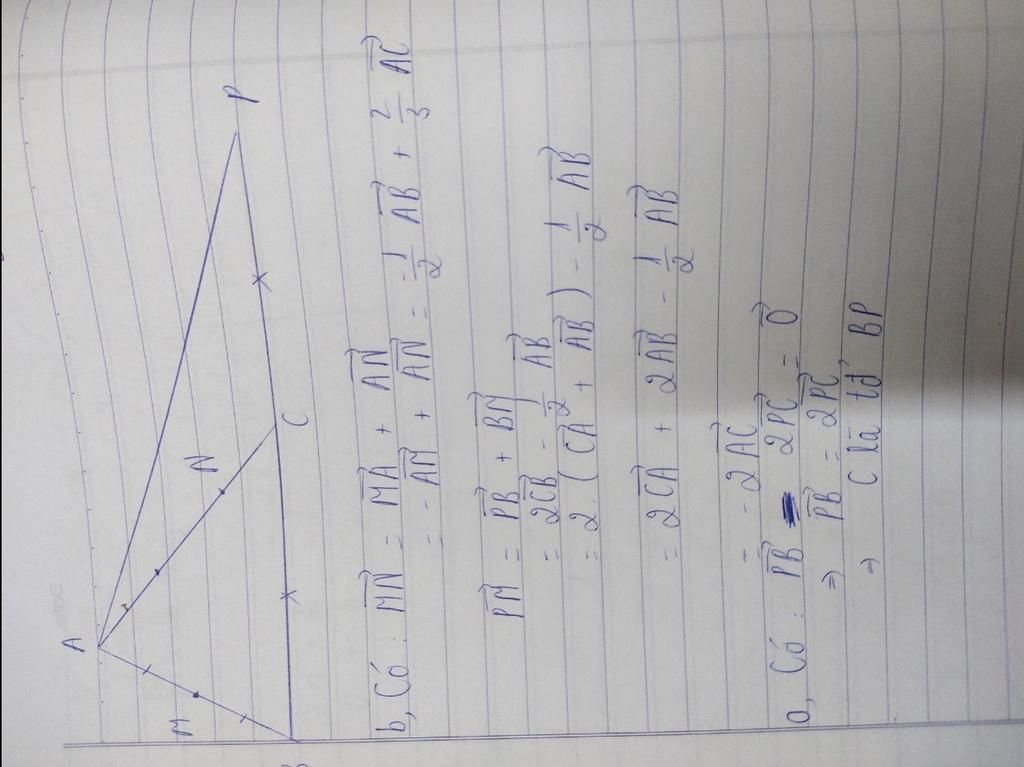 A
M
N
P
C
b, Có: \overrightarrow{MN} = \overrightarrow{MA} + \overrightarrow{AN}
= - \overrightarrow{AM} + \overrightarrow{AN} = -\frac{1}{2} \overrightarrow{AB} + \frac{2}{3} \overrightarrow{AC}
\overrightarrow{PM} = \overrightarrow{PB} + \overrightarrow{BM}
= 2\overrightarrow{CB} - \frac{1}{2} \overrightarrow{AB}
= 2. (\overrightarrow{CA} + \overrightarrow{AB}) - \frac{1}{2} \overrightarrow{AB}
= 2\overrightarrow{CA} + 2\overrightarrow{AB} - \frac{1}{2} \overrightarrow{AB}
= - 2\overrightarrow{AC}
a, Có: \overrightarrow{PB} - 2\overrightarrow{PC} = \overrightarrow{0}
⇒ \overrightarrow{PB} = 2\overrightarrow{PC}
⇒ C là tđ' BP